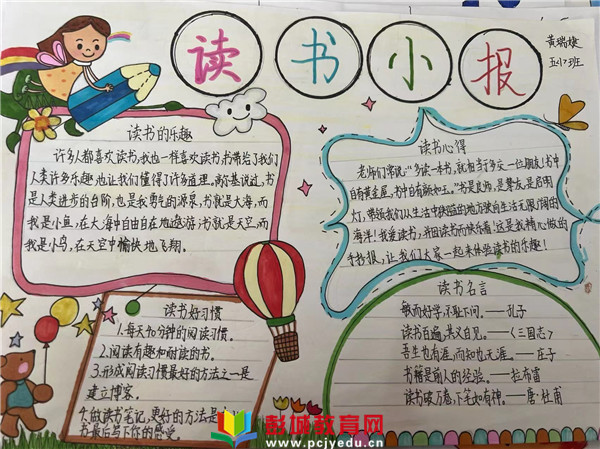 读书小报
黄瑞婕
五(7)班
读书的乐趣
许多人都喜欢读书,我也一样喜欢读书。书带给了我们
人类许多乐趣,也让我们懂得了许多道理。高尔基说过,书
是人类进步的台阶,也是我勇气的源泉,书就是大海,而
我是小鱼,在大海中自由自在地遨游;书就是天空,而
我是小鸟,在天空中愉快地飞翔。
读书心得
老师们常说:“多读一本书,就相当于多交一位朋友!书中
自有黄金屋,书中自有颜如玉。”书是良师,是挚友,是启明
灯,带领我们从生活中狭隘的地方驶向生活无限广阔的
海洋!我爱读书,并因读书而快乐着!这是我精心做的
手抄报,让我们大家一起来体验读书的乐趣!
读书好习惯
1.每天十分钟的阅读习惯。
2.阅读有趣和耐读的书。
3.形成阅读习惯最好的方法之一是
建立博客。
4.做读书笔记,更好的方法是
书最后写下你的感受。
读书名言
敏而好学,不耻下问。——孔子
读书百遍,其义自见。——《三国志》
吾生也有涯,而知也无涯。——庄子
书籍是前人的经验。——拉布雷
读书破万卷,下笔如有神。——唐·杜甫
彭城教育网
www.pcjyedu.cn